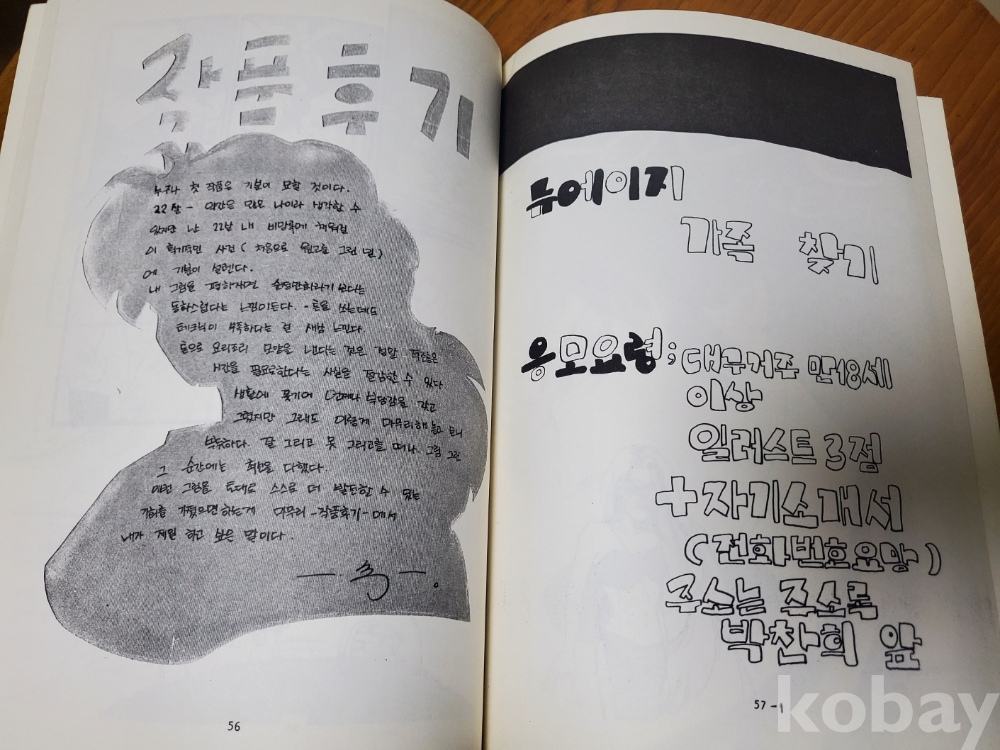 작품후기
누구나 첫 작품은 기분이 묘할 것이다.
22살 - 약간은 많은 나이라 생각할 수
있지만 난 22살 내 비망록에 채워질
이 획기적인 사건 ( 처음으로 원고를 그린 일 )
에 기분이 설렌다.
내 그림을 평하자면 순정만화라기 보다는
동화스럽다는 느낌이든다. - 톤을 쓰는데도
테크닉이 부족하다는 걸 새삼 느낀다.
톤으로 요리조리 모양을 낸다는 것은 정말
시간을 필요로한다는 사실을 절감할 수 있다
생활에 쫓기어 언제나 부담감을 갖고
그렸지만 그래도 이렇게 마무리해 놓고 보니
뿌듯하다. 잘 그리고 못 그리고를 떠나 그림 그린
그 순간에는 최선을 다했다.
이런 그림을 토대로 스스로 더 발전할 수 있는
기회를 가졌으면하는게 마무리 - 작품후기 - 에서
내가 제일 하고 싶은 말이다
56
뉴에이지
가족 찾기
응모요령; 대구거주 만18세
이상
일러스트 3점
+자기소개서
(전화번호요망)
주소는 주소록
박찬희 앞
57-1
kobay